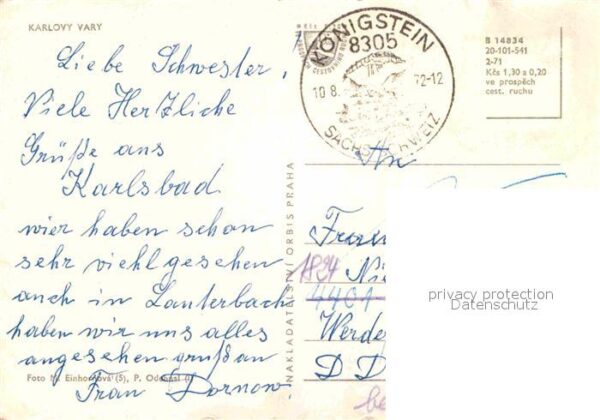 KARLOVY VARY
Liebe Schwester,
Viele Herzliche
Grüße aus
Karlsbad
wier haben schon
sehr viehl gesehen
auch in Lauterbach
haben wir uns alles
angesehen gruß an
Frau Dornow.
Foto M. Einhornová (5), P. Odehnal
NAKLADATELSTVÍ ORBIS PRAHA
KÖNIGSTEIN
8305
10.8. 72-12
SÄCHS. SCHWEIZ
B 14834
20-101-541
2-71
Kčs 1,30 a 0,20
ve prospěch
cest. ruchu
An
Frau
Werde
D D
privacy protection
Datenschutz